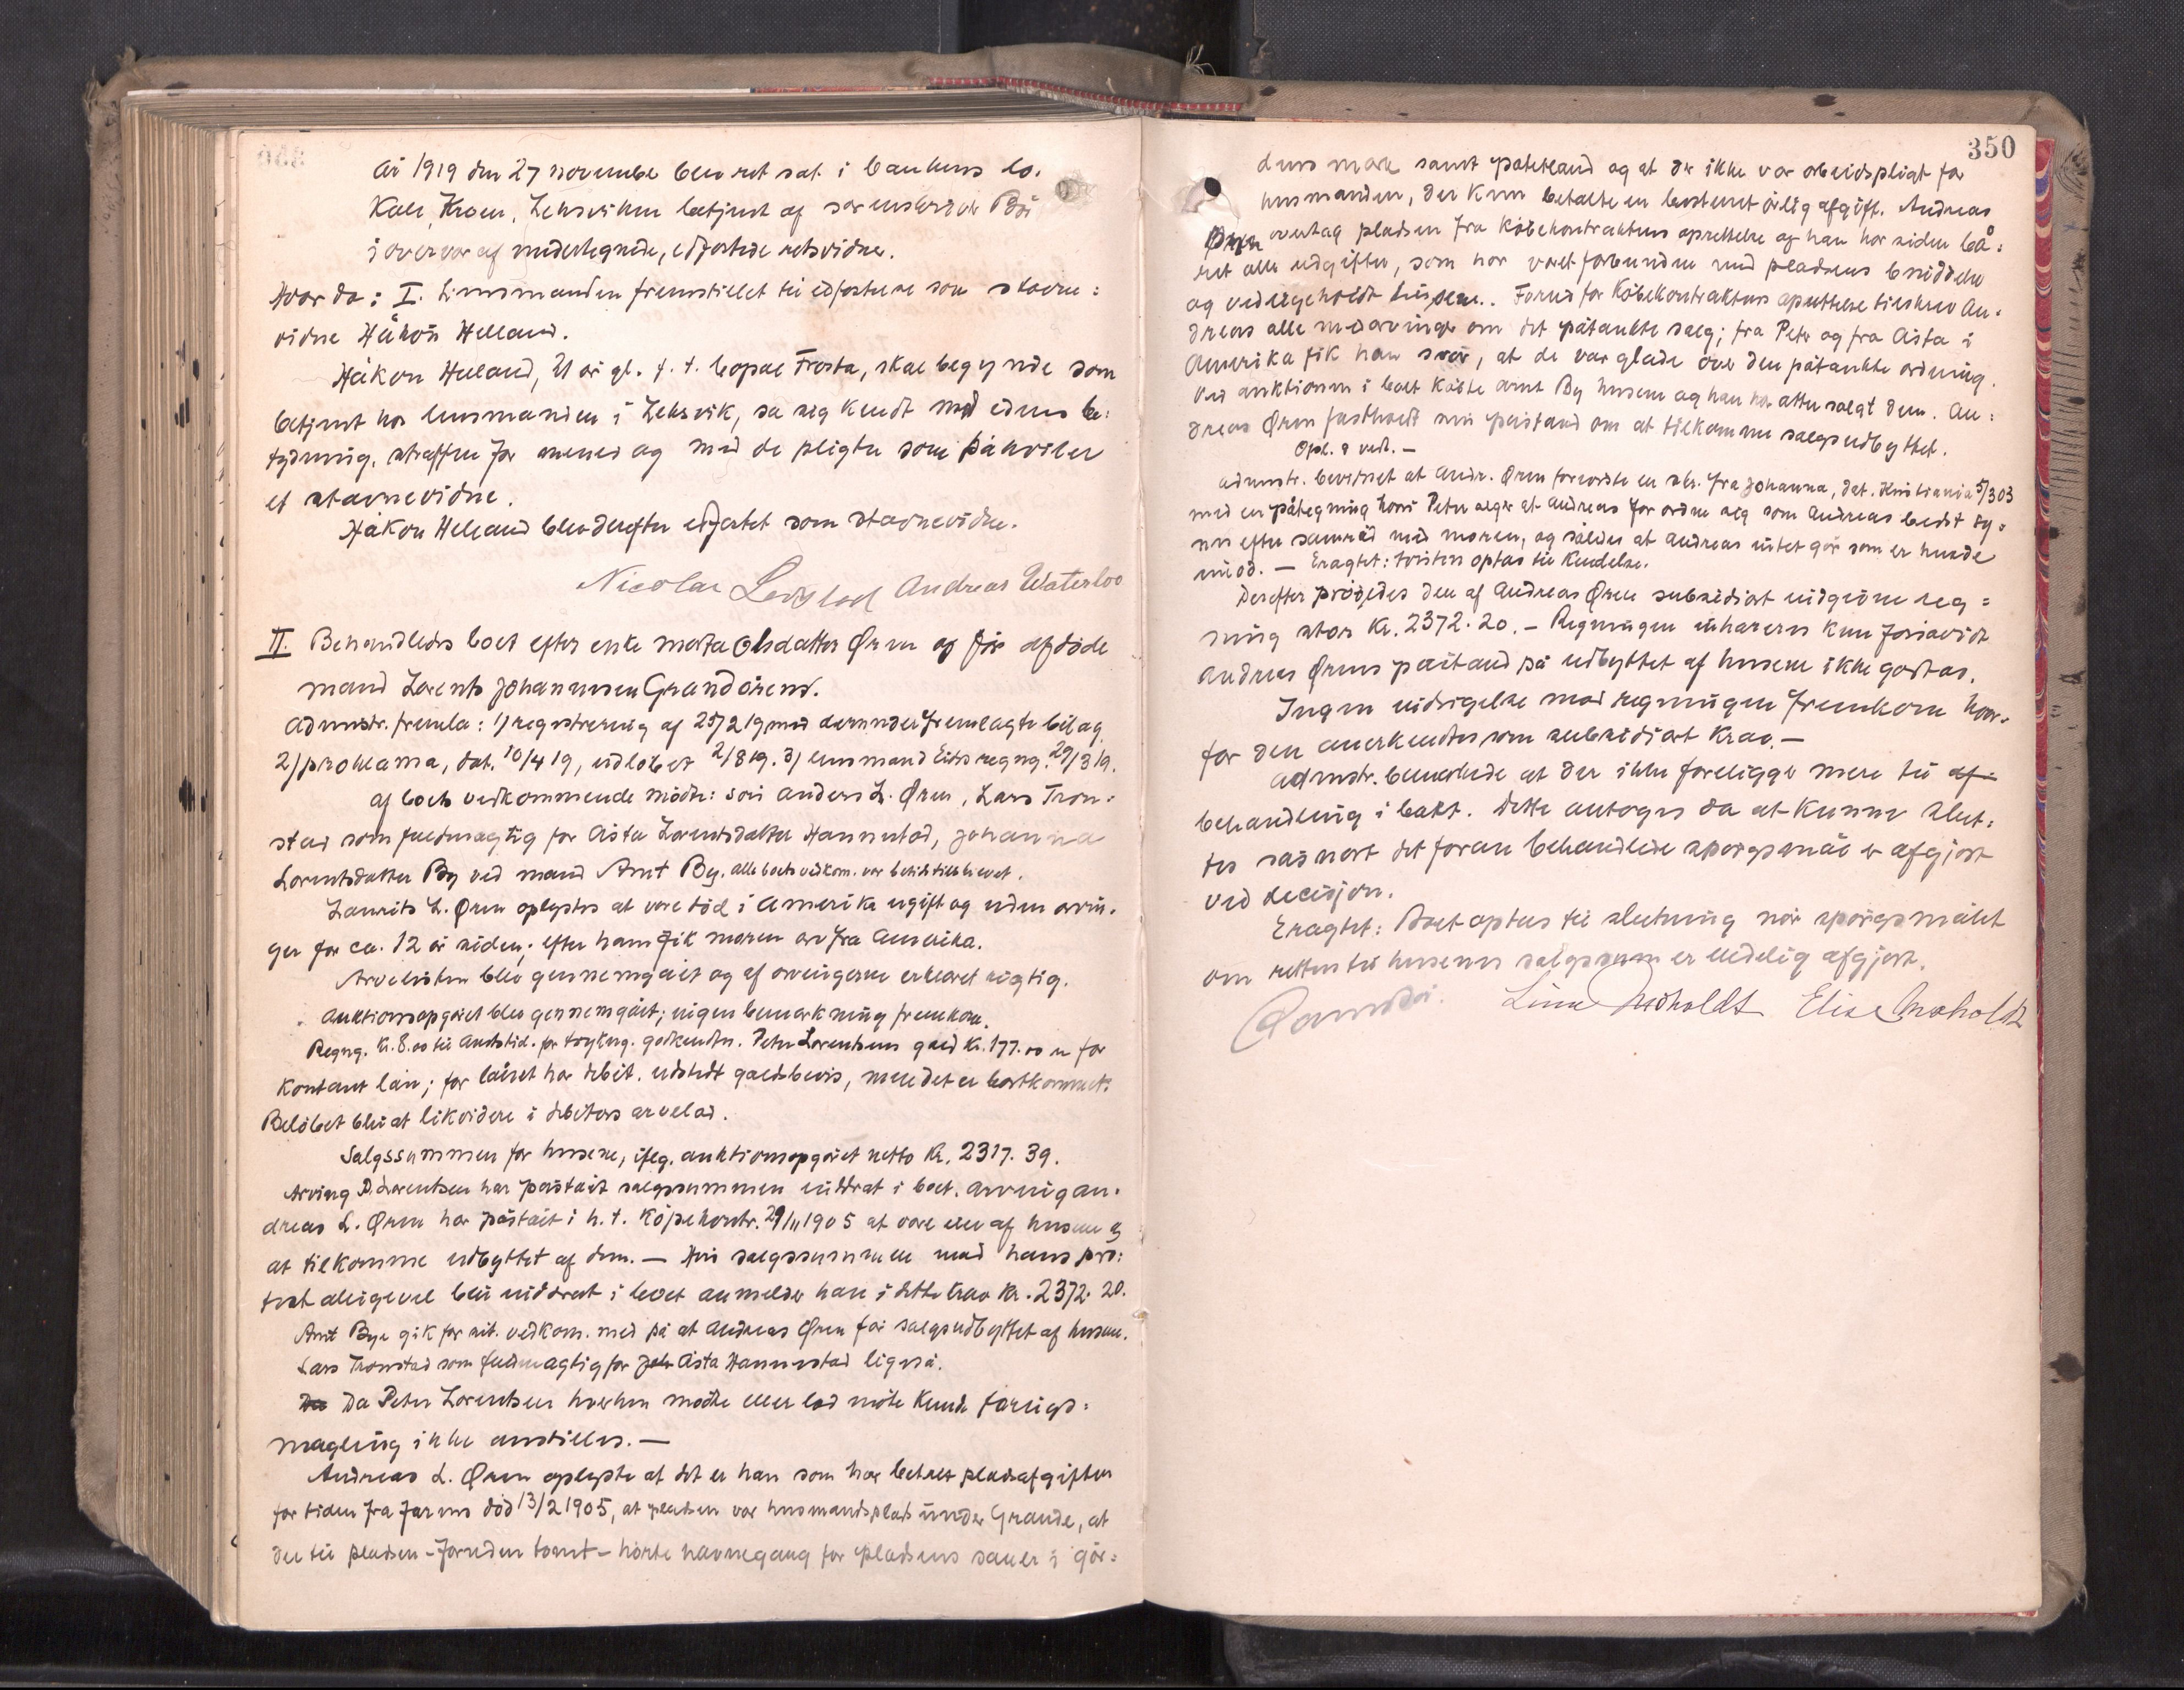 År 1919 den 27 november blev ret sat i bankens lo-
kale, Kroen, Leksviken betjent af sorenskriver Böe
i overvær af undertegnede, edfæstede retsvidner.
Hvorda: I. Lensmanden fremstillet til edfæstelse som stævne=
vidne Håkon Helland.
Håkon Helland, 21 år gl. f. t. bopæl Frosta, skal begynde som
betjent hos lensmanden i Leksvik, sa sig kendt med edens be=
tydning, straffen for mened og med de pligter som påhviler
et stævnevidne.
Håkon Helland blev derefter edfæstet som stævnevidne.
Nicolai Andreas Waterloo
II. Behandledes boet efter enke Marta Olsdatter Øren og før afdöde
mand Lorents Johannesen Grandören.
Admstr. fremla: 1) registrering af 25/2 19 med derunder fremlagte bilag
2) proklama, dat. 10/4 19, udlöbet 2/8 19. 3) lensmand regng. 29/3 19.
af boets vedkommende mödte: sön Anders L. Øren, Lars Tron=
stad som fuldmægtig for Asta Lorentsdatter Hammstad, Johanna
Lorentsdatter By ved mand Arnt By. Alle boets vedkom. var betids tilskrevet.
Laurits L. Øren oplystes at være död i Amerika ugift og uden arvin-
ger for ca. 12 år siden; efter ham fik moren arv fra Amerika.
Arvelisten blev gennemgået og af arvingerne erklæret rigtig.
Auktionsopgöret blev gennemgået; ingen bemærkning fremkom.
Regng. kr. 8.00 til Amtstid. for trykng. godkendtes. Peter Lorentsens gæld kr. 177.00 er for
kontant lån; for lånet har debit. udstedt gældsbevis, men det er bortkommet.
Belöbet blir at likvidere i debitors arvelod.
Salgssummen for husene, iflg. auktionsopgöret netto kr. 2317.39.
Arving P. Lorentsen har påstået salgssummen inddrat i boet. Arving An-
dreas L. Øren har påstået i h. t. köpekontr. 29/11 1905 at være eier af husene og
at tilkomme udbyttet af dem. — Hvis salgssummen mod hans pro=
test alligevel blir inddrat i boet anmelder han i dette krav kr. 2372.20.
Arnt Bye gik for sit vedkom. med på at Andreas Øren får salgsudbyttet af husene.
Lars Tronstad som fuldmægtig for Joh Asta Hammstad ligeså.
Da Da Peter Lorentsen hverken mödte eller lod möte kunde forligs=
mægling ikke anstilles. —
Andreas L. Øren oplyste at det er han som har betalt pladsafgiften
for tiden fra farens död 13/2 1905, at pladsen var husmandsplads under Grande, at
der til pladsen - foruden tomt - hörte havnegang for pladsens sauer i går=
350
dens mark samt potetesland og at der ikke var arbeidspligt for
husmanden, der kun betalte en bestemt årlig afgift. Andreas
Øren overtog pladsen fra köbekontraktens oprettelse og han har siden bå=
ret alle udgifter, som har været forbundne med pladsens besiddelse
og vedligeholdt husene. Forud for köbekontraktens oprettelse tilskrev An=
dreas alle medarvinger om det påtænkte salg; fra Peter og fra Asta i
Amerika fik han svar, at de var glade over den påtænkte ordning.
Ved auktionen i boet köbte Arnt By husene og han har atter solgt dem. An=
dreas Øren fastholdt sin påstand om at tilkomme salgsudbyttet.
Opl. & vedt. —
Admstr. bevidnet at Andr. Øren foreviste en skr. fra Johanna, dat. Kristiania 5/3 03
med en påtegning hvori Peter siger at Andreas får ordne sig som Andreas bedst sy=
nes efter samråd med moren, og således at Andreas intet gör som er hende
imod. — Eragtet: tvisten optas til kendelse.
Derefter prövedes den af Andreas Øren subsidiært indgivne reg=
ning stor kr. 2372.20. — Regningen inhæreres kun forsåvidt
Andreas Ørens påstand på udbyttet af husene ikke godtas.
Ingen indsigelse mod regningen fremkom hvor-
for den anerkendtes som subsidiært krav. —
Admstr. bemerkede at der ikke foreligger mere til af-
behandling i boet. Dette antoges da at kunne slut=
tes såsnart det foran behandlede spörgsmål er afgjort
ved decisjon.
Eragtet: Boet optas til slutning når spörgsmålet
om retten til husenes salgssum er endelig afgjort.